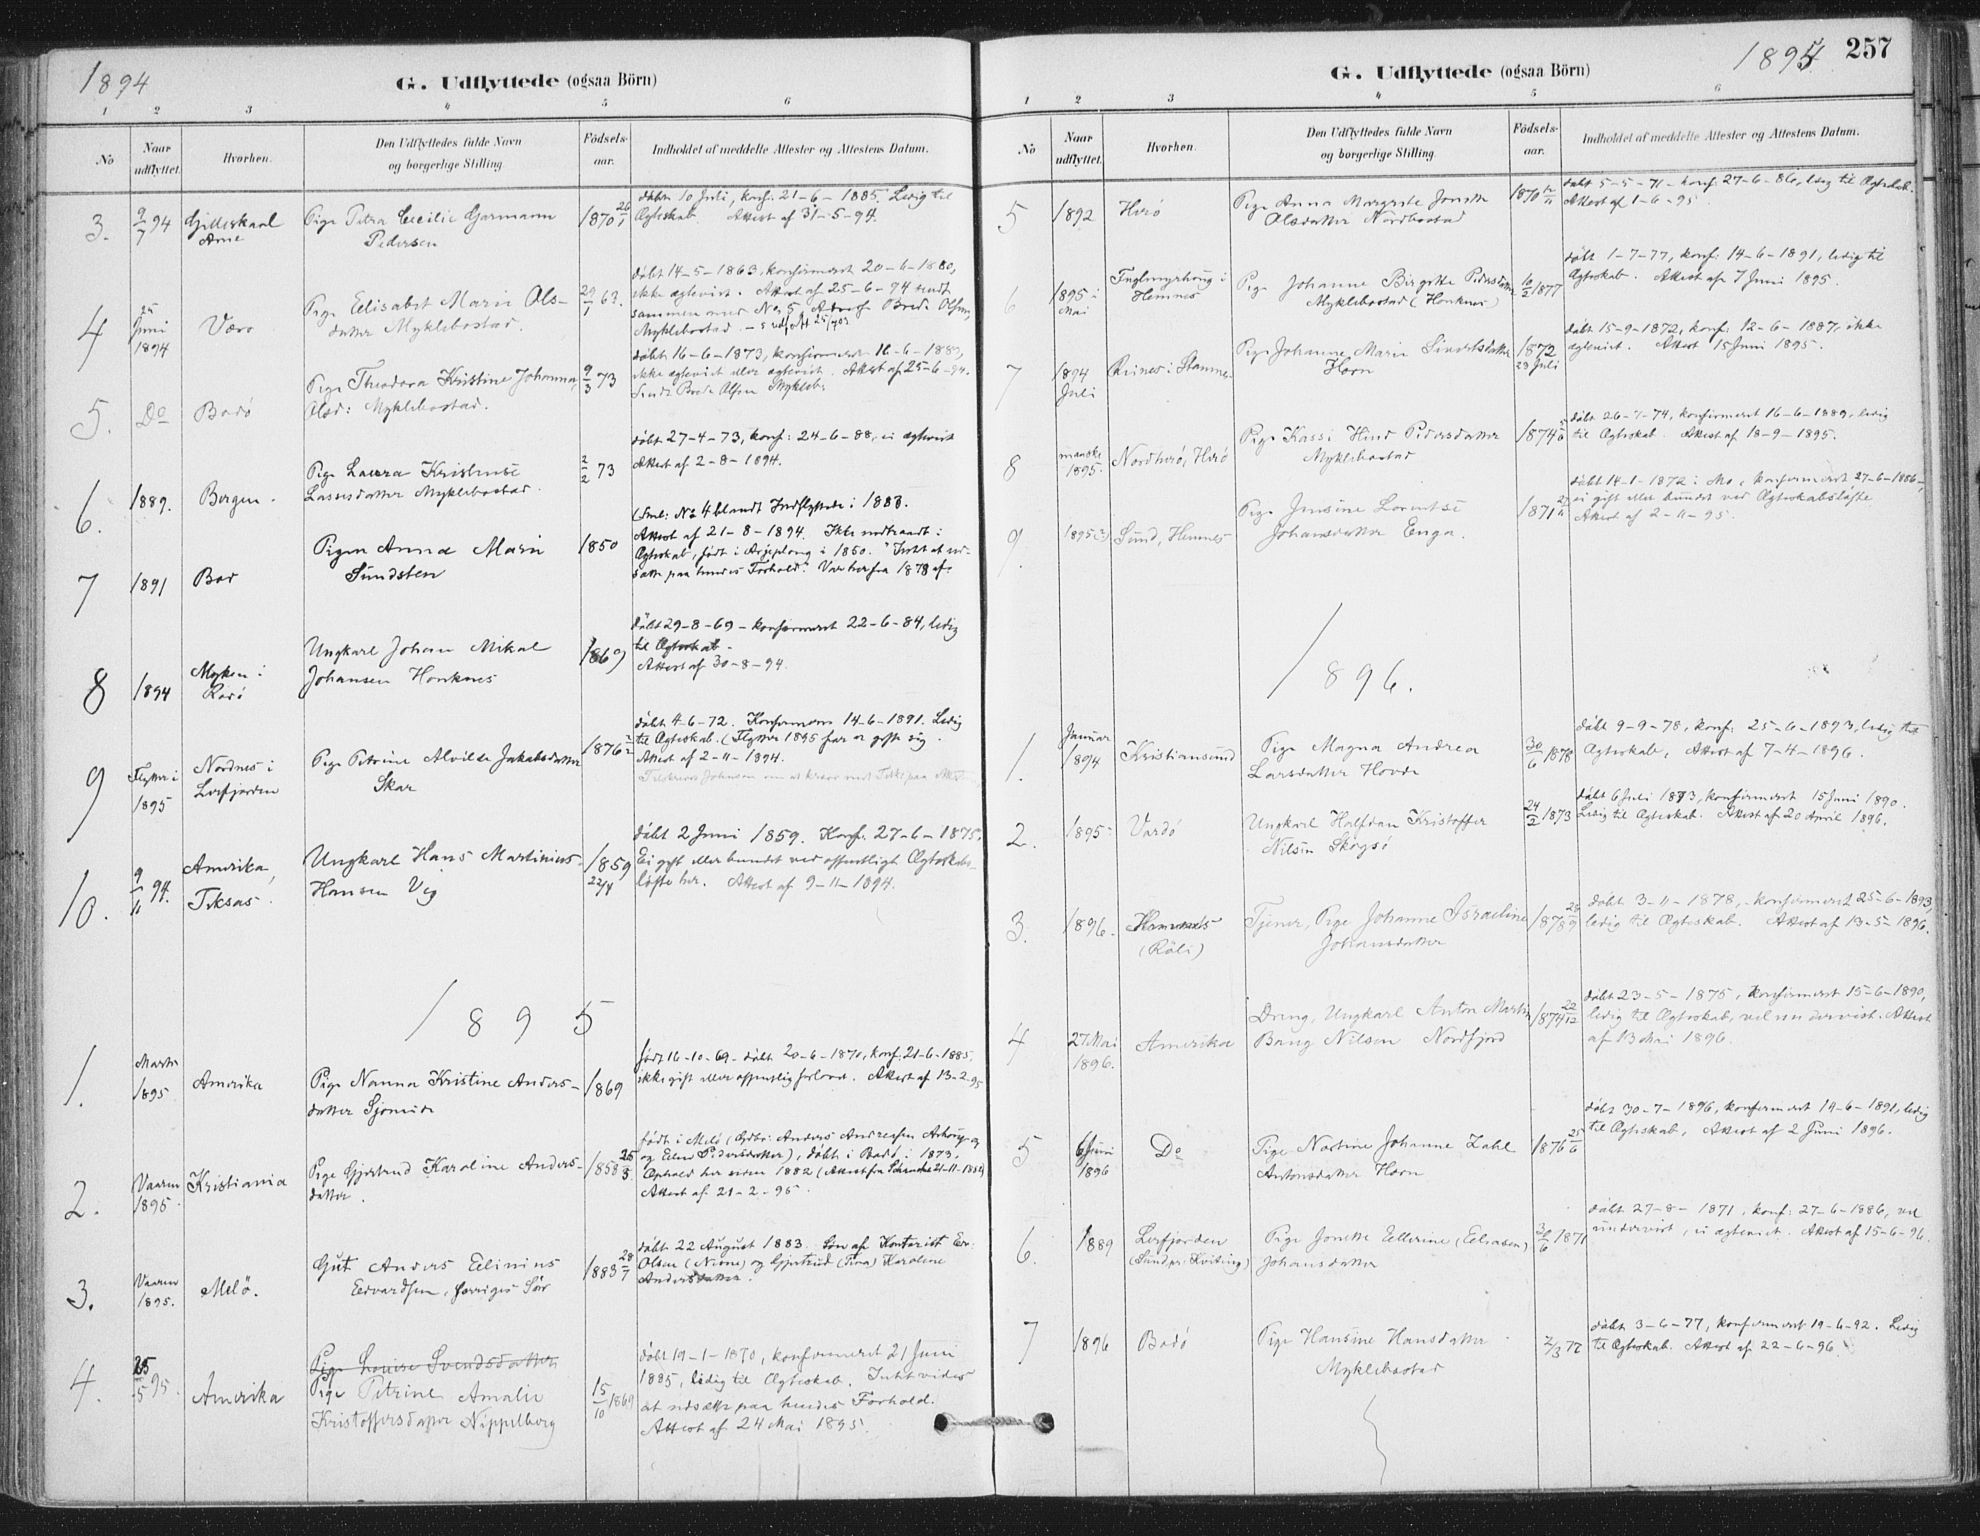 1894
G. Udflyttede (ogsaa Börn)
1 2 3 4 5 6
No
Naar udflyttet.
Hvorhen.
Den Udflyttedes fulde Navn
og borgerlige Stilling
Födsels-
aar.
Indholdet af meddelte Attester og Attestens Datum.
3. 9/7 94 Gilleskaal
Pige Petra Cecilie Garmann
Pedersen
1870 26/1
döbt 10 Juli, konf. 21-6-1885. Ledig til
Ægteskab. Attest af 31-5-94.
4 25 Juni 1894 Værö
Pige Elisabet Marie Ols-
datter Myklebostad.
29/1 63.
döbt 14-5-1863, konfirmeret 20-6-1880,
ikke ægteviet. Attest af 25-6-94 sendt
sammen med No 5. Adresse Brede Olsen,
Myklebostad
5. Do Bodö
Pige Theodora Kristine Johanna
Olsd: Myklebostad.
9/3 73
döbt 16-6-1873, konfirmeret 16-6-1889,
Attest af 25-6-94.
Sendt Brede Olsen Mykleb:
6. 1889. Bergen.
Pige Laura Kristense
Lassesdatter Myklebostad.
2/2 73
döbt 27-4-73, konf: 24-6-88, ei ægteviet
Attest af 2-8-1894.
7 1891 Bod
Pigen Anna Marie
Sundsten
1850
(Sml: No 4 blandt Indflyttede i 1888.
Attest af 21-8-1894. Ikke indtraadt i
Ægteskab, født i Arjeplong i 1850. Intet at ud-
sætte paa hendes Forhold.
8 1894 Myken i
Rödö
Ungkarl Johan Mikal
Johansen Honknes
1869
döbt 29-8-69 - konfirmeret 22-6-84, ledig
til Ægteskab.
Attest af 30-8-94.
9 Flytter i
1895
Nordnes i
Leirfjorden
Pige Petrine Alvilde Jakobsdatter
Skar
1876
döbt 4-6-72. Konfirmeret 14-6-1891. Ledig
til Ægteskab. (Flytter 1895 for at gifte sig.
Attest af 2-11-1894.
10. 9/11 94. Amerika,
Teksas.
Ungkarl Hans Martinius
Hansen Vig
1859
22/4
döbt 2 Juni 1859. Konf. 27-6-1875.
Ei gift eller bundet ved offentligt Ægteskabs-
löfte her. Attest af 9-11-1894.
1895
1. Marts
1895 Amerika
Pige Nanna Kristine Anders-
datter Sjonide
1869
född 16-10-69 - döbt 20-6-1870, konf: 21-6-1885.
ikke gift eller offentlig forlovet. Attest af 13-2-95
2. Vaaren
1895. Kristiania
Pige Gjertrud Karoline Anders-
datter.
1858 25/3
født i Melö (Gbr: Anders Andreassen
og Ellen Pedersdatter), döbt i Bodö i 1873.
Ophold her siden 1882
Attest af 21-2-95.
3. Vaaren
1895. Melö.
Gut Anders Elinius
Edvardsen, forriges Sön
1883 28/7
döbt 22 August 1883. Sön af Kontorist Ed:
Olsen og Gjertrud Karoline
Andersdatter.
4. 25/5 95. Amerika
Pige Louise Svendsdatter
Pige Petrine Amalie
Kristoffersdatter Nippelberg
15/10 1869
döbt 19-1-1870, konfirmeret 21 Juni
1885, ledig til Ægteskab. Intet vides
at udsætte paa hendes Forhold.
Attest af 24 Mai 1895.
1895 257
G. Udflyttede (ogsaa Börn)
1 2 3 4 5 6
No
Naar udflyttet.
Hvorhen.
Den Udflyttedes fulde Navn
og borgerlige Stilling
Födsels-
aar.
Indholdet af meddelte Attester og Attestens Datum.
5 1892 Herö
Pige Anna Margrete Jonette
Olsdatter Nordbostad
1870
döbt 5-5-71 - konf: 27-6-86, ledig til Ægteskab.
Attest af 1-6-95
6 1895 i
Mai
Fuglmyrhaug i
Hemnes
Pige Johanne Birgitte Pedersdatter
Myklebostad (Honknes)
10/2 1877
döbt 1-7-77, konf: 14-6-1891, ledig til
Ægteskab. Attest af 7 Juni 1895.
7 1894
Juli
Reines i Stamnes
Pige Johanne Marie Sivertsdatter
Horn
1872
23 Juli
döbt 15-9-1872, konf: 12-6-1887, ikke
ægteviet. Attest 15 Juni 1895.
8 1895. Nordherö, Herö
Pige Kassi Hind Pedersdatter
Myklebostad
1874
döbt 26-7-74, konfirmeret 16-6-1889, ledig
til Ægteskab. Attest af 18-9-1895.
9. 1895(?) Sund, Hemnes
Pige Jensine Lorentse
Johansdatter Enga.
1871
döbt 14-1-1872 i Mo, konfirmeret 27-6-1886,
ei gift eller bundet ved Ægteskabslöfte
Attest af 2-11-95.
1896.
1. Januar
1894 Kristiansund
Pige Magna Andrea
Larsdatter Hovde
30/6 1878
döbt 9-9-78, konf: 25-6-1893, ledig til
Ægteskab, Attest af 7-4-1896.
2. 1895 Vardö
Ungkarl Halfdan Kristoffer
Nilsen Skogsö
24/2 1873
döbt 6 Juli 1873, konfirmeret 15 Juni 1890.
Ledig til Ægteskab. Attest af 20 April 1896.
3. 1896. Hemnes
(Röli)
Tjener, Pige Johanne Israeline
Johansdatter
1878 28/9
döbt 3-11-1878, konfirmeret 25-6-1893,
ledig til Ægteskab. Attest af 13-5-1896.
4 27 Mai
1896. Amerika
Dreng, Ungkarl Anton Martin
Bang Nilsen Nordfjord
1874 22/12
döbt 23-5-1875, konfirmeret 15-6-1890,
ledig til Ægteskab, vel undervist. Attest
af 13 Mai 1896.
5 6 Juni
1896 Do
Pige Nastine Johanne Zahl
Antonsdatter Horn
1876 25/6
döbt 30-7-1876, konfirmeret 14-6-1891, ledig
til Ægteskab, Attest af 2 Juni 1896.
6. 1889 Leirfjorden
Pige Jonette Ellerine (Eliasen)
Johansdatter
30/6 1871
döbt 27-8-1871, konf: 27-6-1886, vel
undervist, ei ægteviet. Attest af 15-6-96.
7 1896 Bodö
Pige Hansine Hansdatter
Myklebostad
2/3 77
döbt 3-6-77, konfirmeret 19-6-92. Ledig
til Ægteskab. Attest af 22-6-96.